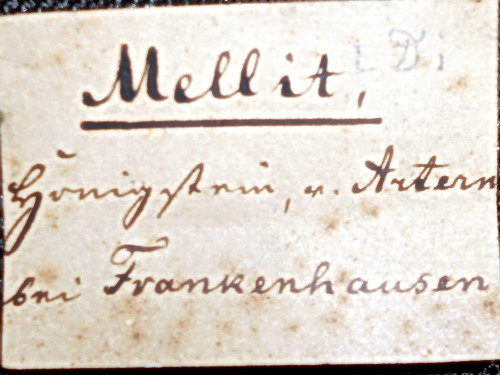 Mellit,
Honigstein, v. Artern
bei Frankenhausen